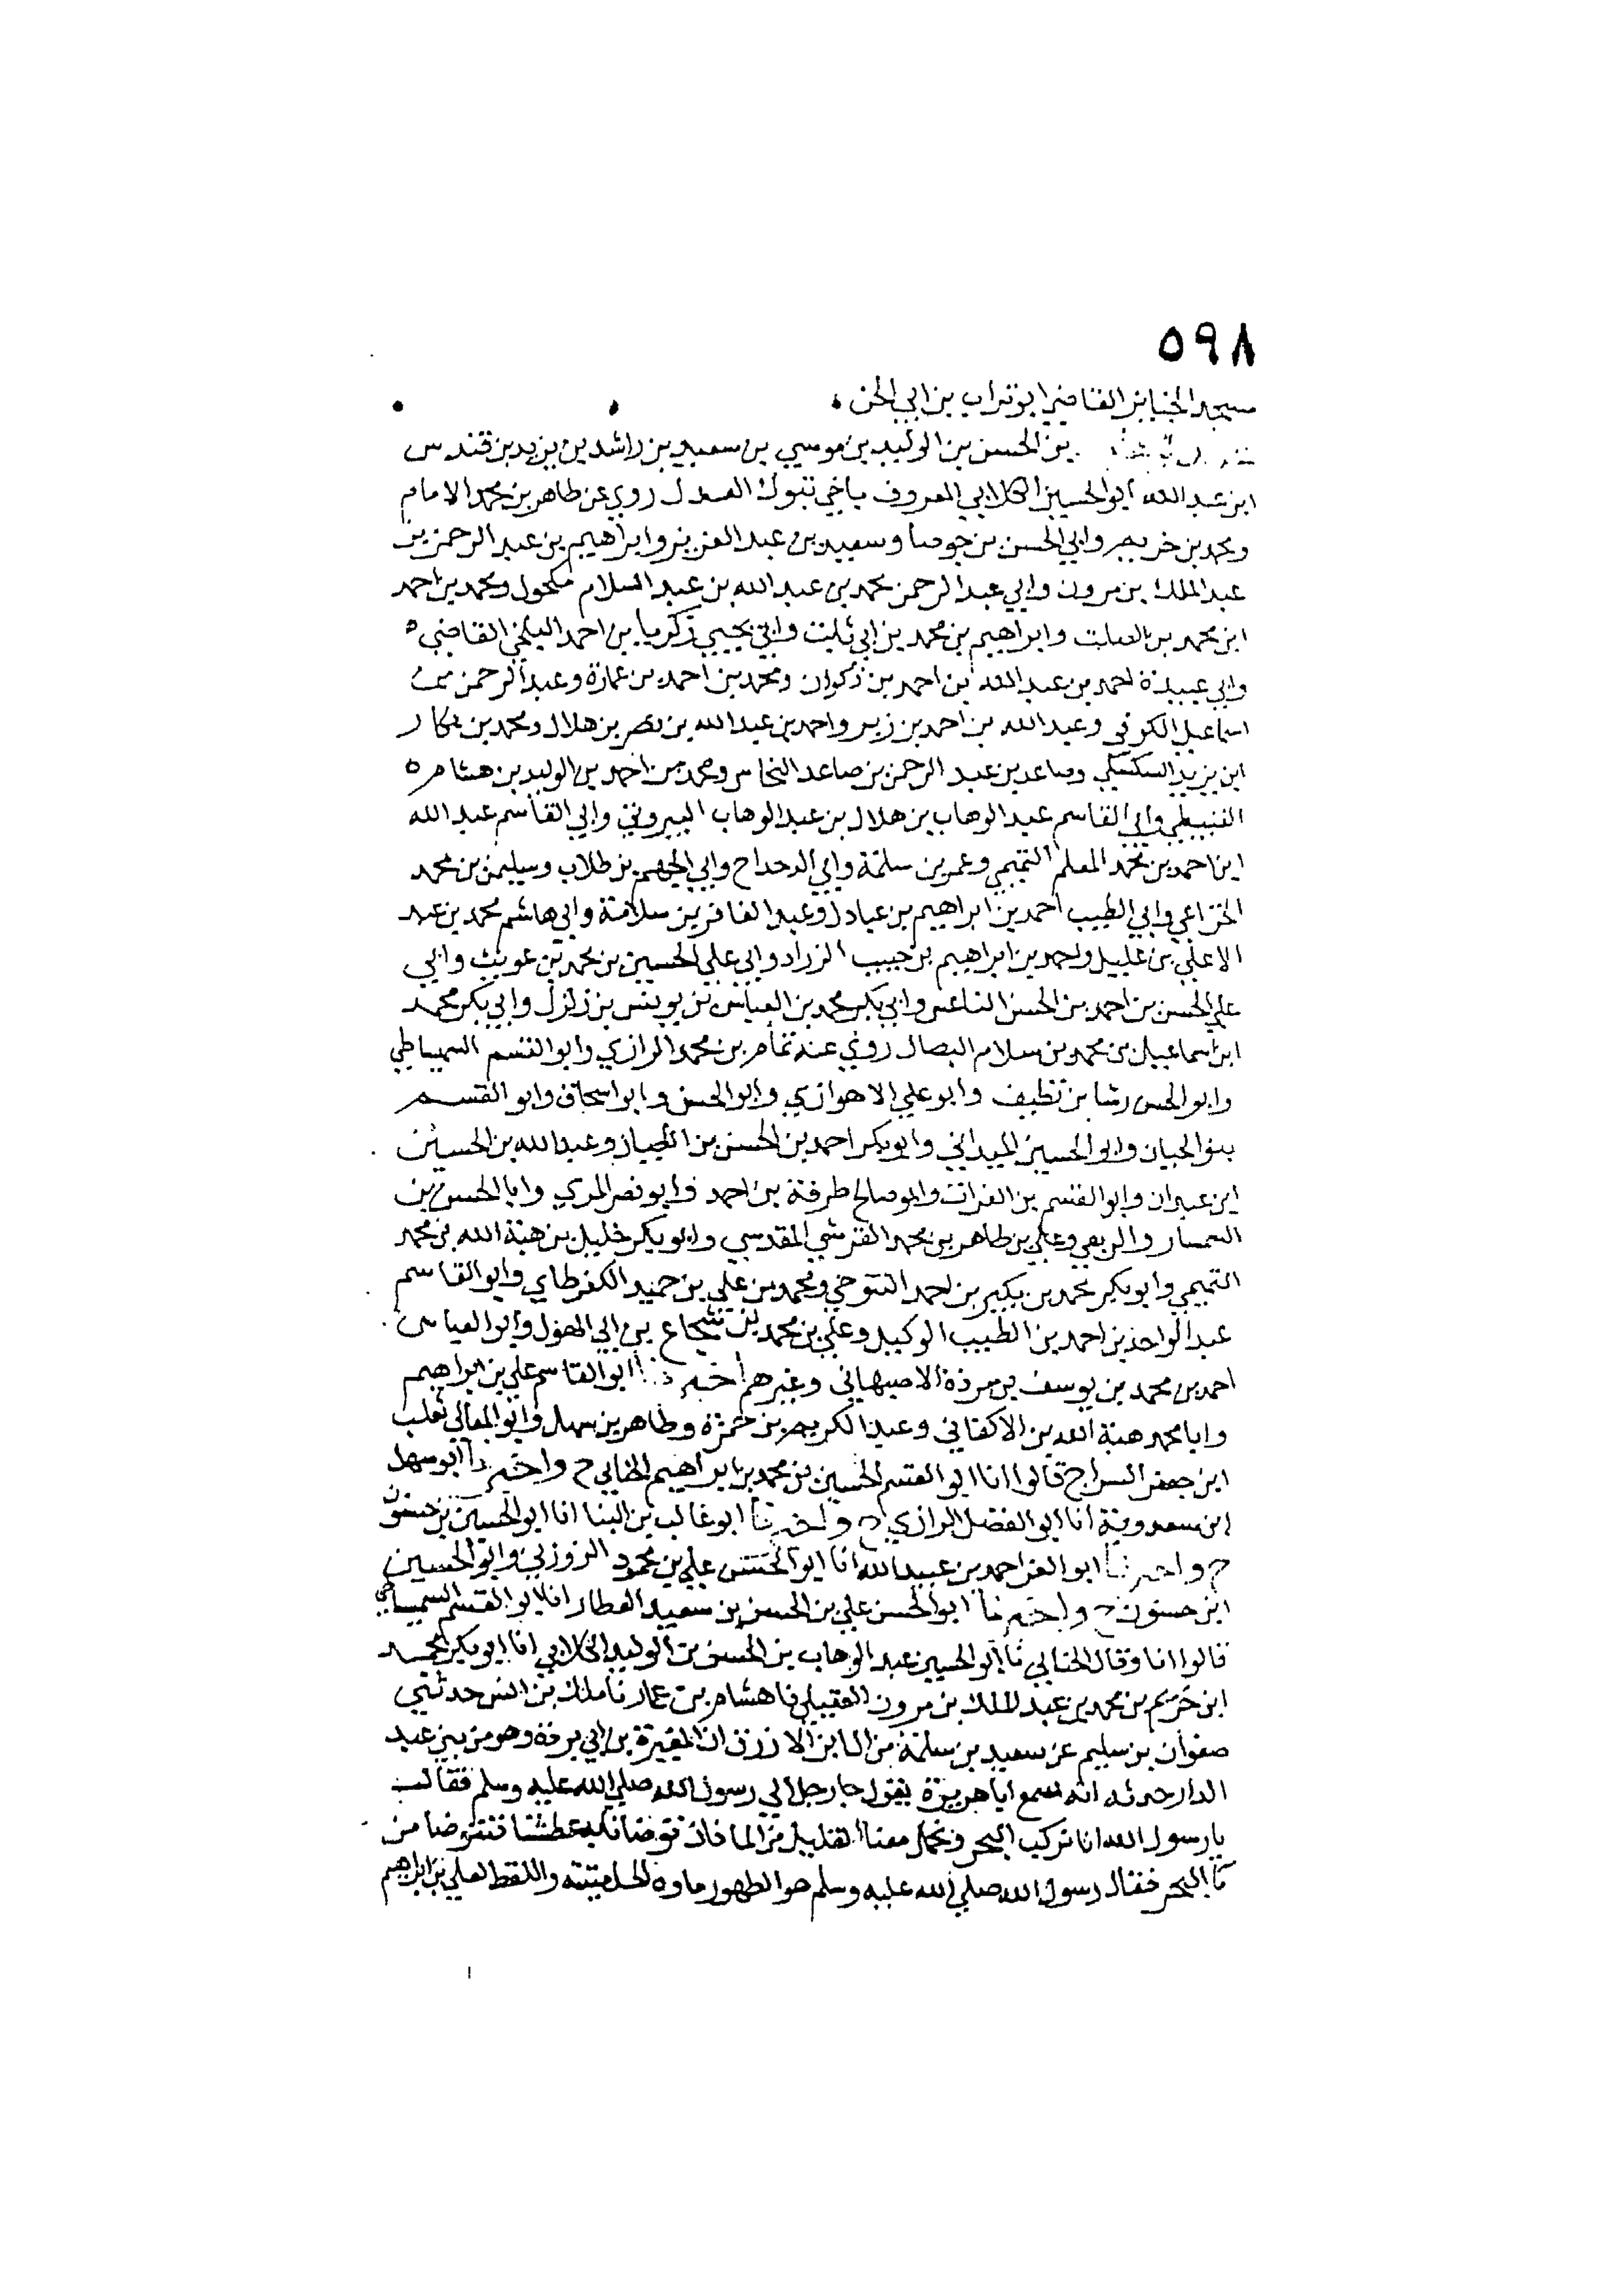 ٥٩٨
مسجد الجنايز القاضي ابو تراب بن ابي الجن
بن الحسن بن الوليد بن موسي بن سعيد بن راشد بن يزيد بن قندس
ابن عبد الله ابو الحسين الكلابي المعروف باخي تبوك العدل روي عن طاهر بن محمد الامام
ومحمد بن خريم وابي الحسن بن جوصا وسعيد بن عبد العزيز وابراهيم بن عبد الرحمن بن
عبد الملك بن مرون وابي عبد الرحمن محمد بن عبد الله بن عبد السلام مكحول ومحمد بن احمد
ابن محمد بن الصلت وابراهيم بن محمد بن ابي ثابت وابي يحيي زكريا بن احمد البلخي القاضي
وابي عبيدة احمد بن عبد الله ابن احمد بن ذكوان ومحمد بن احمد بن عمارة وعبد الرحمن بن
اسماعيل الكوفي وعبد الله بن احمد بن زبر واحمد بن عبد الله بن نصر بن هلال ومحمد بن بكار
ابن يزيد السكسكي وصاعد بن عبد الرحمن بن صاعد النخاس ومحمد بن احمد بن الوليد بن هشام
القنبيطي وابي القاسم عبد الوهاب بن هلال بن عبد الوهاب البيروتي وابي القاسم عبد الله
ابن احمد بن محمد المعلم التميمي وعمر بن سلمة وابي الدحداح وابي الجهم بن طلاب وسليمن بن محمد
الخزاعي وابي الطيب احمد بن ابراهيم بن عبادل وعبد الغافر بن سلامة وابي هاشم محمد بن عبد
الاعلي بن عليل واحمد بن ابراهيم بن حبيب الزراد وابي علي الحسين بن محمد بن عويث وابي
علي الحسن بن احمد بن الحسن الناعس وابي بكر محمد بن العباس بن يونس بن زلزل وابي بكر محمد
ابن اسماعيل بن محمد بن سلام البصال روي عنه تمام بن محمد الرازي وابو القسم السميساطي
وابو الحسن رشا بن نظيف وابو علي الاهوازي وابو الحسن وابو اسحاق وابو القسم
بنو الحبان وابو الحسين الميداني وابو بكر احمد بن الحسن بن الطيان وعبد الله بن الحسين
ابن عبدان وابو القسم بن الفرات وابو صالح طرفة بن احمد وابو نصر المري وابا الحسن بن
السمسار والربعي وعلي بن طاهر بن محمد القرشي المقدسي وابو بكر خليل بن هبة الله بن محمد
التميمي وابو بكر محمد بن بكير بن احمد التنوخي ومحمد بن علي بن حميد الكفرطاي وابو القاسم
عبد الواحد بن احمد بن الطيب الوكيل وعلي بن محمد بن شجاع بن ابي الهول وابو العباس
احمد بن محمد بن يوسف بن مردة الاصبهاني وغيرهم اخبرنا ابو القاسم علي بن ابراهيم
وابا محمد هبة الله بن الاكفاني وعبد الكريم بن حمزة وطاهر بن سهل وابو المعالي ثعلب
ابن جعفر السراج قالوا انا ابو القسم الحسين بن محمد بن ابراهيم الحنايي ح واخبرنا ابو سهل
ابن سعدوية انا ابو الفضل الرازي ح واخبرنا ابو غالب بن البنا انا ابو الحسين بن حسنون
ح واخبرنا ابو العز احمد بن عبيد الله انا ابو الحسن علي بن محمود الزوزني وابو الحسين
ابن حسنون ح واخبرنا ابو الحسن علي بن الحسن بن سعيد العطار انا ابو القسم السميساطي
قالوا انا وقال الحنايي نا ابو الحسين عبد الوهاب بن الحسن بن الوليد الكلابي انا ابو بكر محمد
ابن خريم بن محمد بن عبد الملك بن مرون العقيلي نا هشام بن عمار نا ملك بن انس حدثني
صفوان بن سليم عن سعيد بن سلمة من ال ابن الازرق ان المغيرة بن ابي بردة وهو من بني عبد
الدار حدثه انه سمع ابا هريرة يقول جا رجل الي رسول الله صلي الله عليه وسلم فقال
يا رسول الله انا نركب البحر ونحمل معنا القليل من الما فان توضانا به عطشنا فنتوضا من
ما البحر فقال رسول الله صلي الله عليه وسلم هو الطهور ماوه الحل ميتته واللفظ لعلي بن ابراهيم